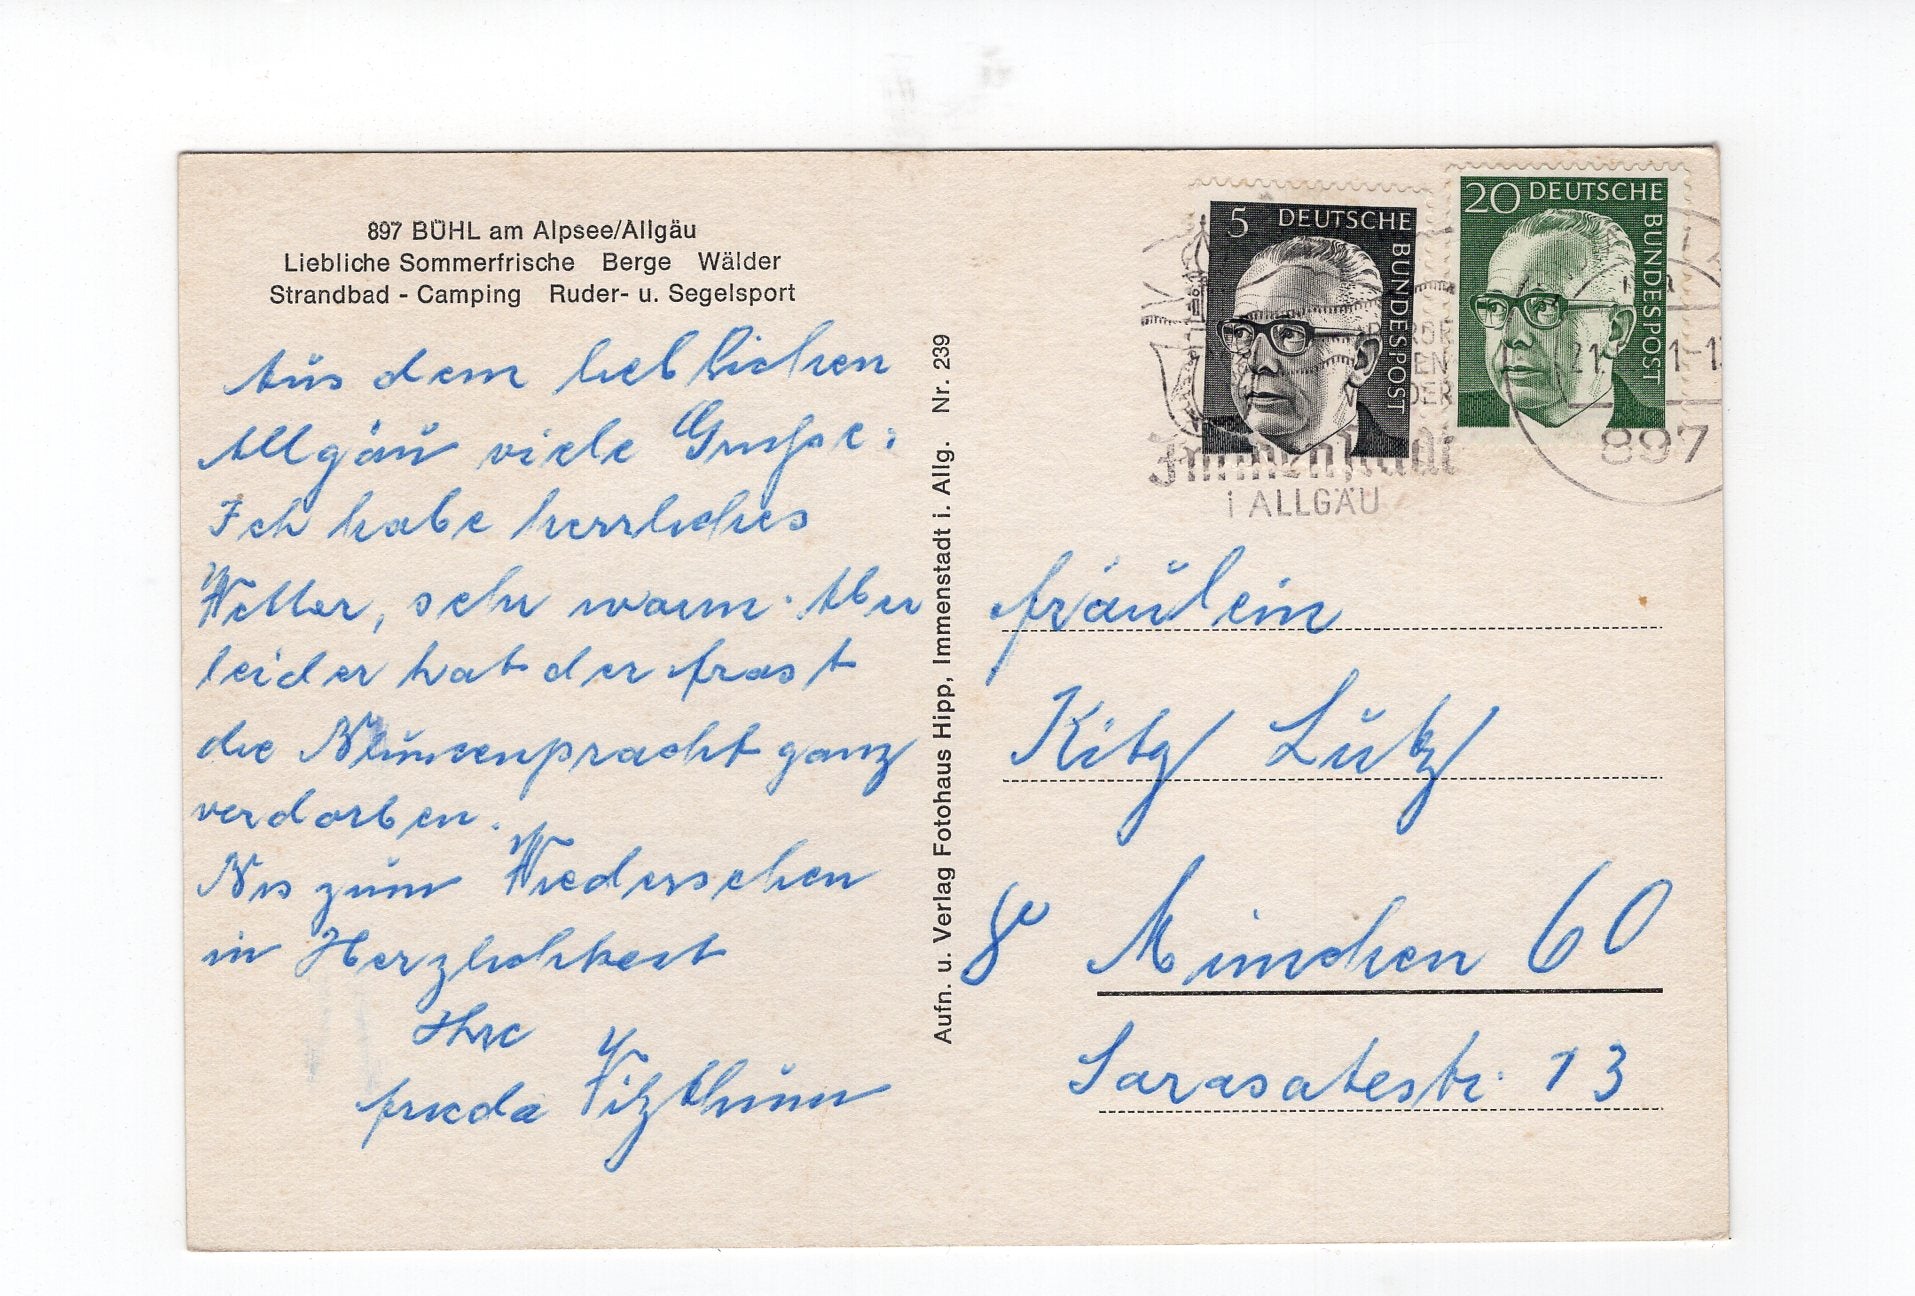 897 BÜHL am Alpsee/Allgäu
Liebliche Sommerfrische Berge Wälder
Strandbad - Camping Ruder- u. Segelsport
Aus dem lieblichen
Allgäu viele Grüsse.
Ich habe herrliches
Wetter, sehr warm. Aber
leider hat der Frost
die Blumenpracht ganz
verdorben.
Bis zum Wiedersehen
in Herzlichkeit
Ihre
Frieda Vitzthum
Aufn. u. Verlag Fotohaus Hipp, Immenstadt i. Allg. Nr. 239
5 DEUTSCHE BUNDESPOST
20 DEUTSCHE BUNDESPOST
Immenstadt
i ALLGÄU
21.
897
Fräulein
Kitz Lutz
8 München 60
Sarasatestr. 13